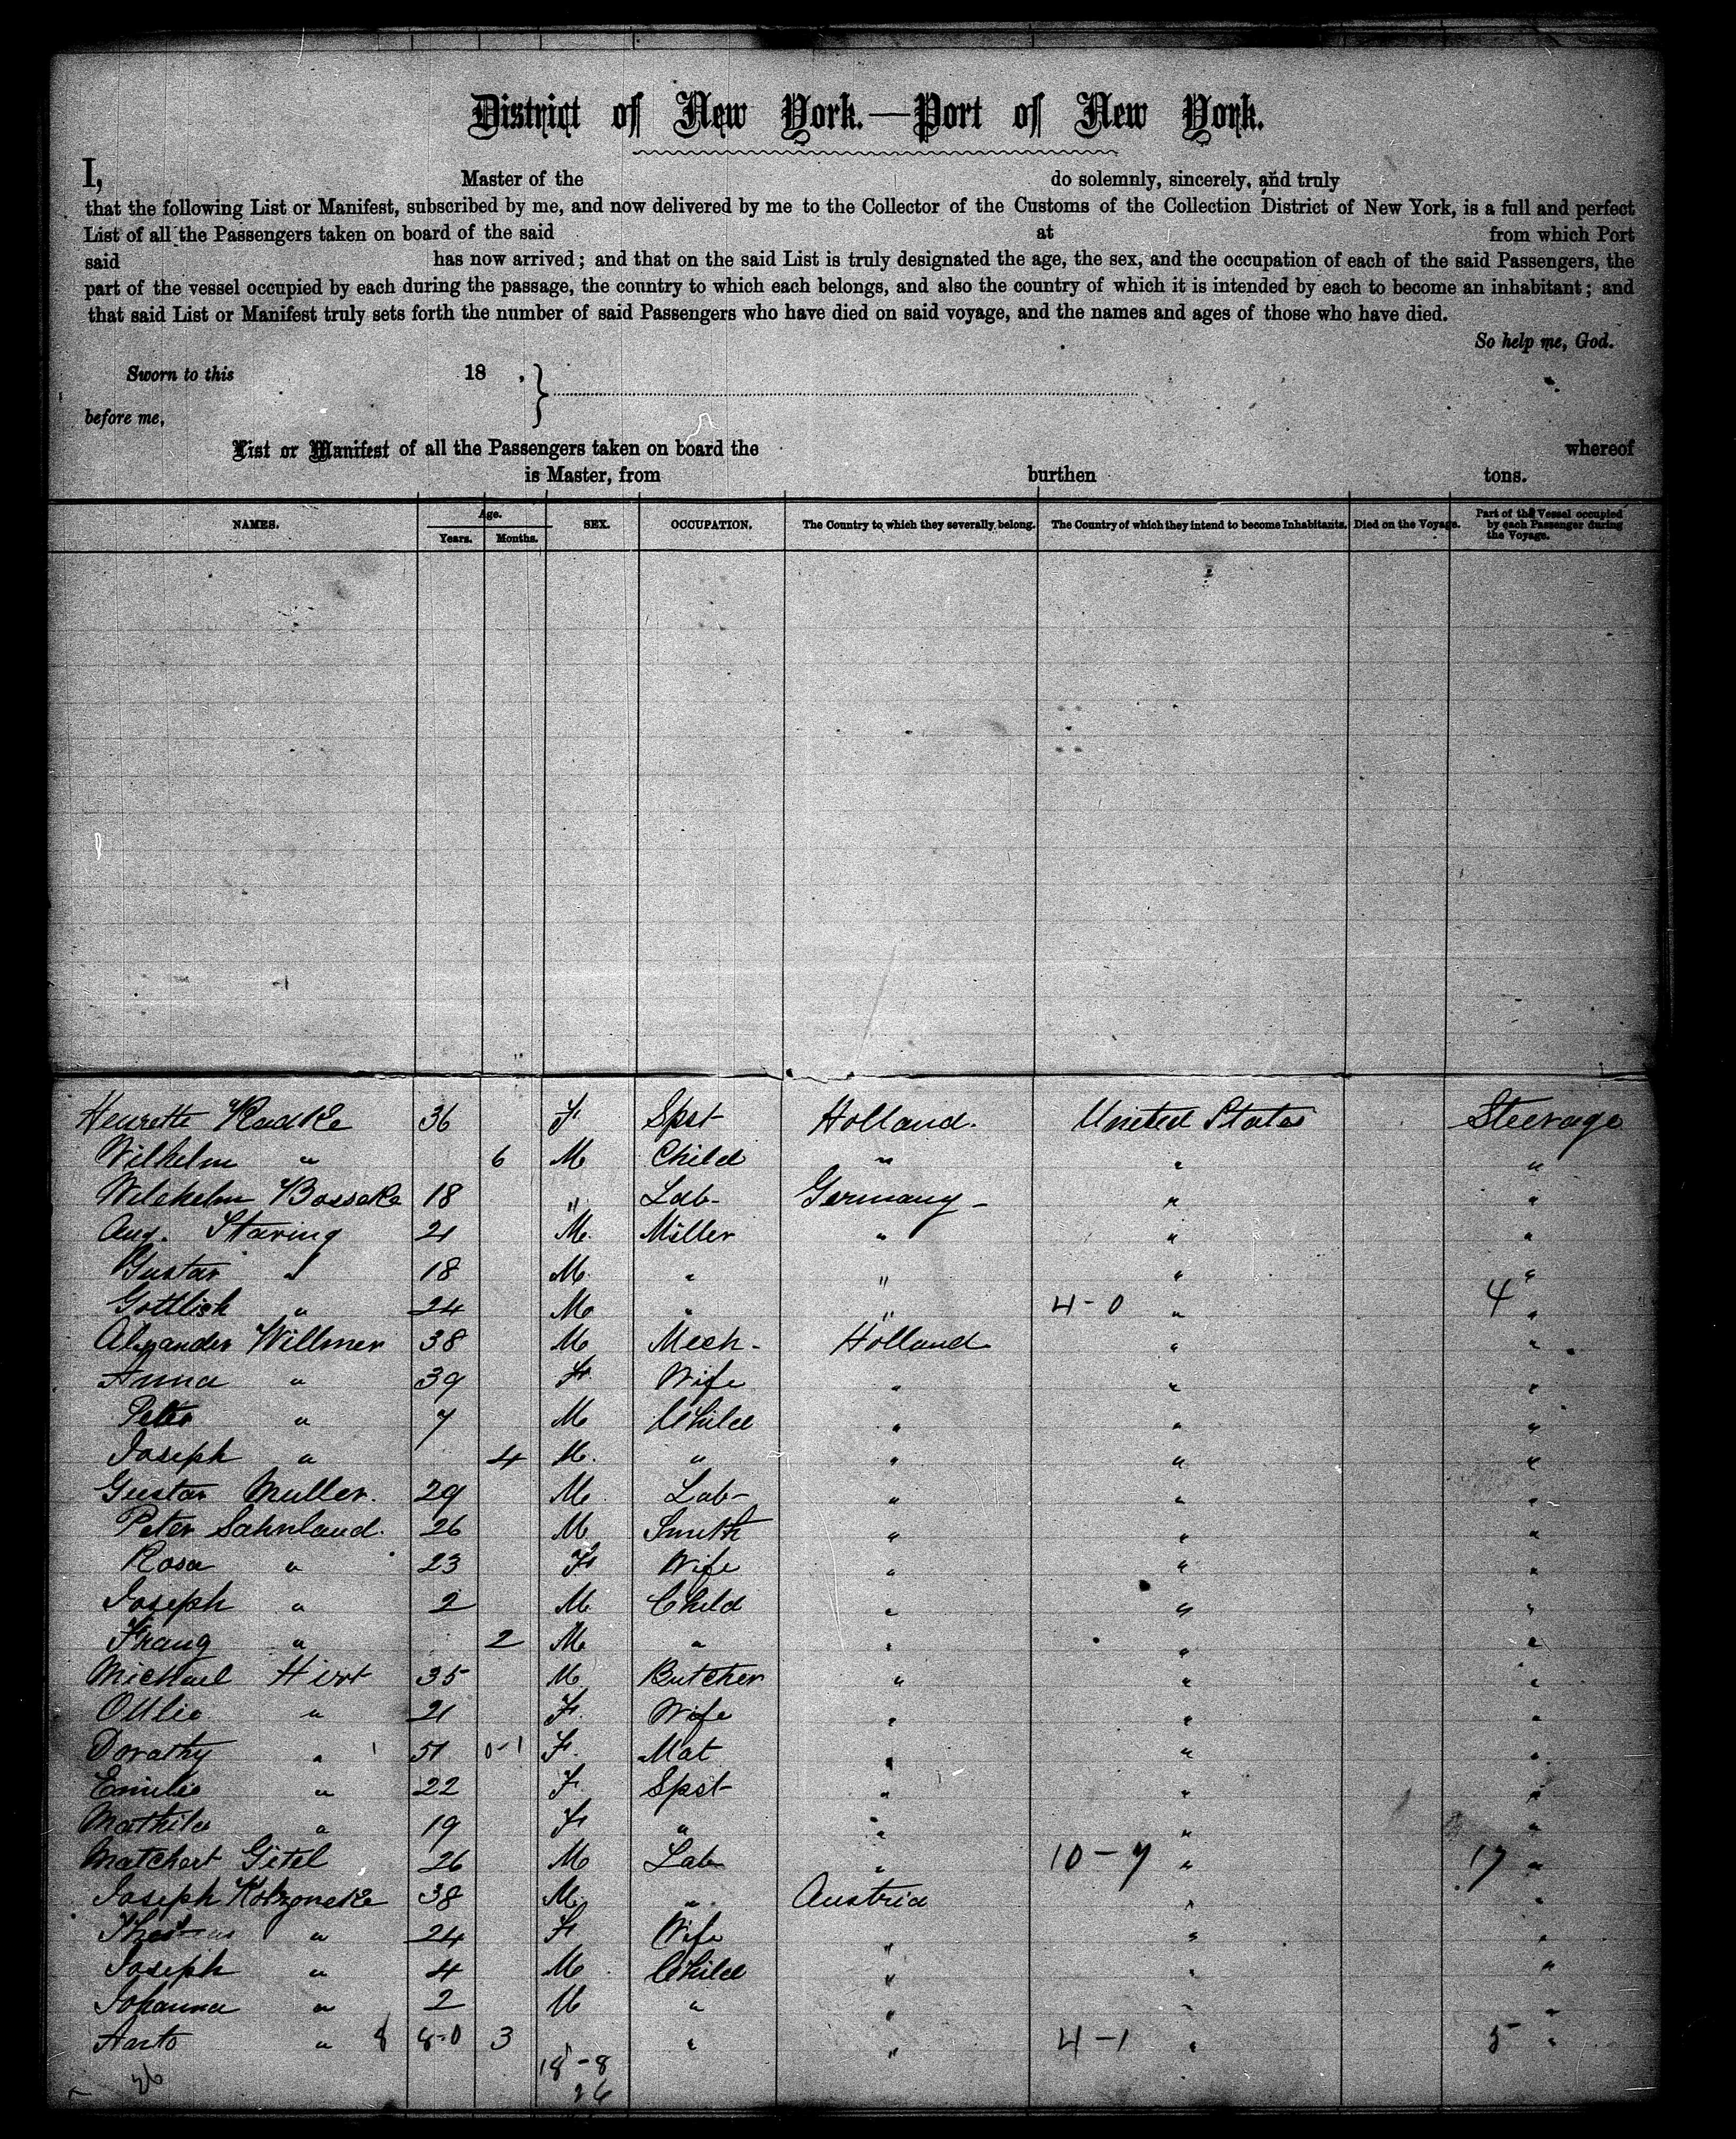 District of New York.—Port of New York.
I, Master of the do solemnly, sincerely, and truly
that the following List or Manifest, subscribed by me, and now delivered by me to the Collector of the Customs of the Collection District of New York, is a full and perfect
List of all the Passengers taken on board of the said at from which Port
said has now arrived; and that on the said List is truly designated the age, the sex, and the occupation of each of the said Passengers, the
part of the vessel occupied by each during the passage, the country to which each belongs, and also the country of which it is intended by each to become an inhabitant; and
that said List or Manifest truly sets forth the number of said Passengers who have died on said voyage, and the names and ages of those who have died.
So help me, God.
Sworn to this 18 .
before me,
List or Manifest of all the Passengers taken on board the whereof
is Master, from burthen tons.
NAMES. Age. Years. Months. SEX. OCCUPATION. The Country to which they severally belong. The Country of which they intend to become Inhabitants. Died on the Voyage. Part of the Vessel occupied by each Passenger during the Voyage.
Henrette Radke 36 F. Spst Holland. United States Steerage
Wilhelm " 6 M Child " " "
Wilehelm 18 " Lab- Germany - " "
Aug. Staring 21 M. Miller " " "
Gustav " 18 M. " " " "
Gottlieb " 24 M " " 4-0 " 4 "
Alexander Willmer 38 M Mech- Holland " "
Anna " 39 F. Wife " " "
Peter " 7 M Child " " "
Joseph " 4 M. " " " "
Gustav Muller. 29 M. Lab- " " "
Peter Sahnland. 26 M Smith " " "
Rosa " 23 F Wife " " "
Joseph " 2 M. Child " " "
Franz " 2 M " " " "
Michael Hirt 35 M Butcher " " "
Ottlie " 21 F. Wife " " "
Dorathy " 51 0-1 F. Mat " " "
Emilie " 22 F. Spst- " " "
Mathile " 19 F " " " "
Gitel 26 M Lab " 10-7 " 17 "
Joseph 38 M. " Austria " "
" 24 F Wife " " "
Joseph " 4 M Child " " "
Johanna " 2 M " " " "
" 8 8-0 3 " " 4-1 " 5 "
26 18-8
26